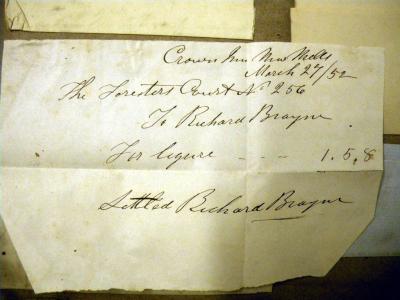 Crown Inn New Mills
March 27/52
The Foresters Court No 256
To Richard Brayne
For liqure - - - 1.5.8
Settled Richard Brayne